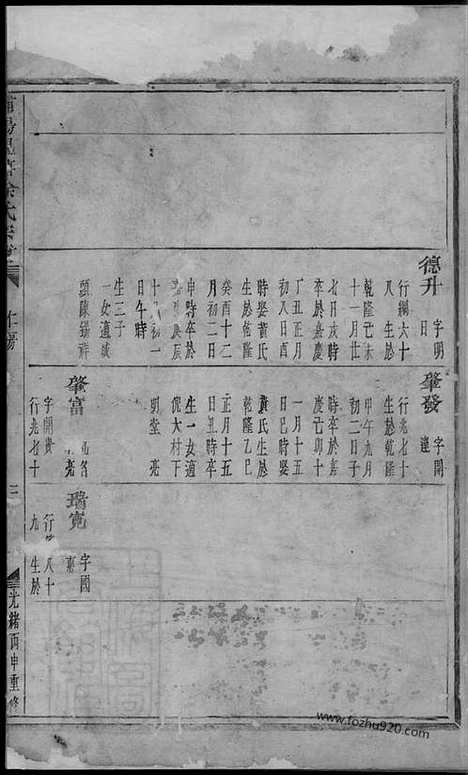 德升 字明
日
行綱六十
八生於
乾隆己未
十一月廿
七日戌時
卒於嘉慶
丁丑正月
初八日酉
時娶黃氏
生於乾隆
癸酉十二
月初二日
申時卒於
庚辰
十 月初一
日午時
生三子
一女適城
頭陳錫祥
肇發 字開
達
行兆七十
生於乾隆
甲午九月
初二日子
時卒於嘉
慶己卯十
一月十五
日巳時娶
黃氏生於
乾隆乙巳
正月十五
日丑時卒
生一女適
倪大村下
明堂
肇富
名
字開貴
行兆七十
瑞寬 字國
行 八十
九 生於
氏宗
仁
三
光緒丙申重修
www.fozhu920.com